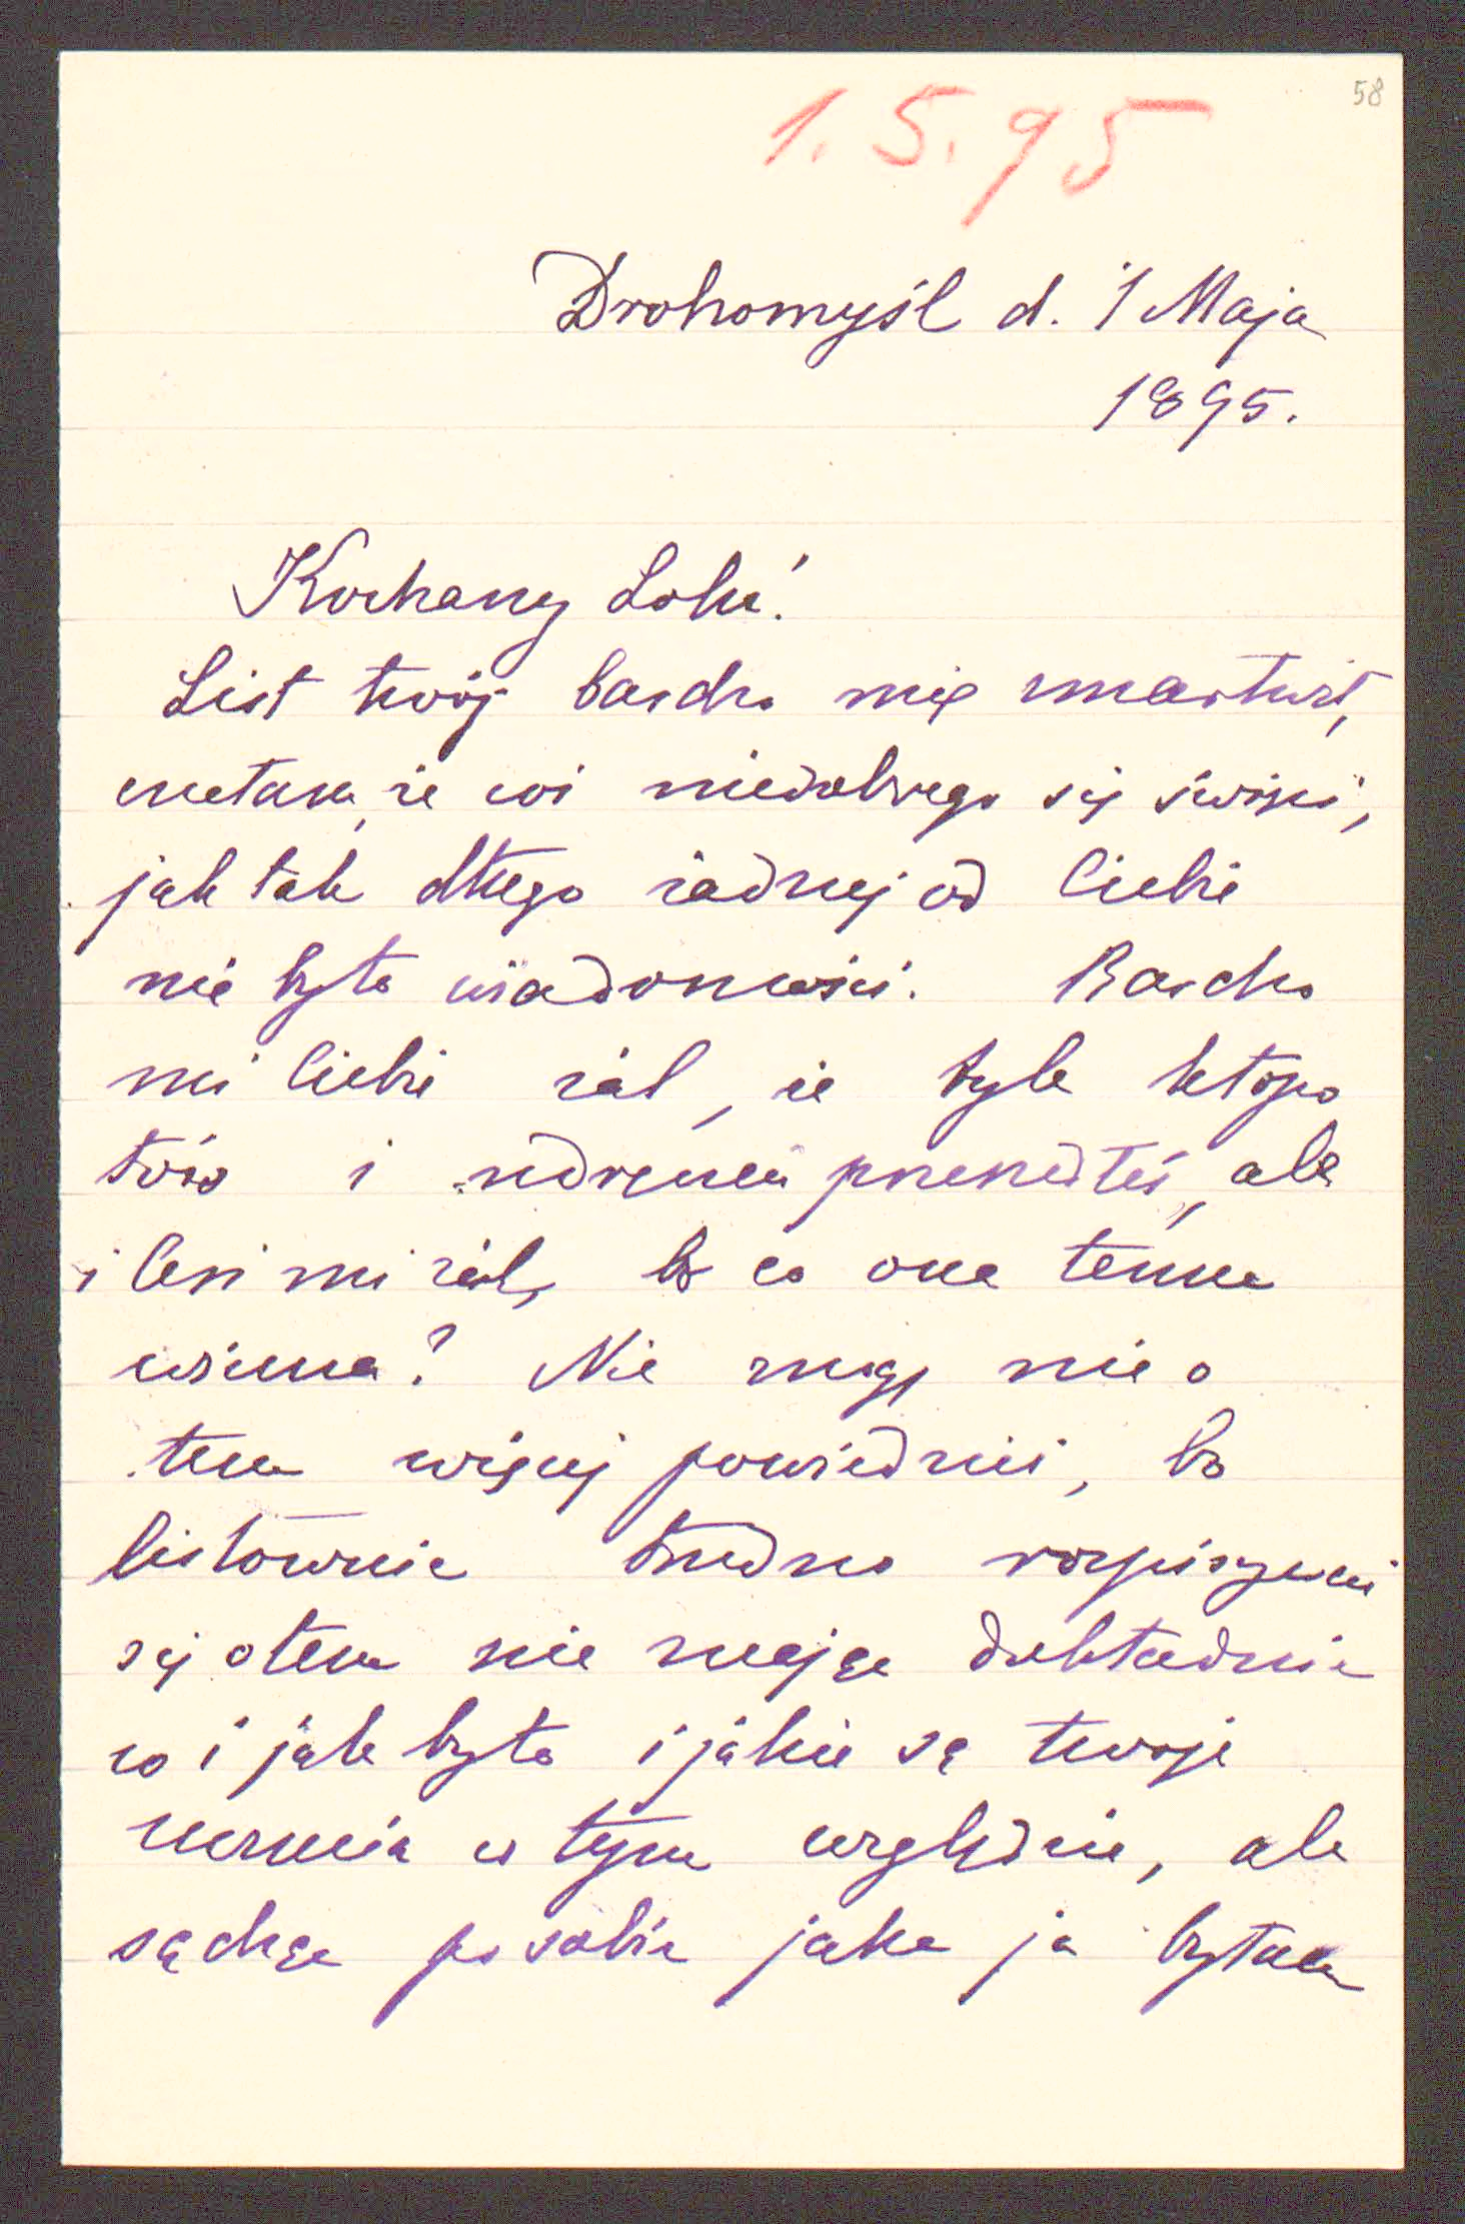 58
1.5.95
Drohomyśl d. 1 Maja
1895.
Kochany Lolu!
List twój bardzo mię zmartwił,
czułam, że coś niedobrego się święci,
jak tak długo żadnej od Ciebie
nie było wiadomości. Bardzo
mi Ciebie żal, że tyle kłopo
tów i udręczeń przeszedłeś, ale
i Cesi mi żal, bo co ona temu
winna? Nie mogę nic o
tem więcej powiedzieć, bo
listownie trudno rozpisywać
się o tem nie znając dokładnie
co i jak było i jakie są twoje
uczucia w tym względzie, ale
sądząc po sobie jaka ja byłam